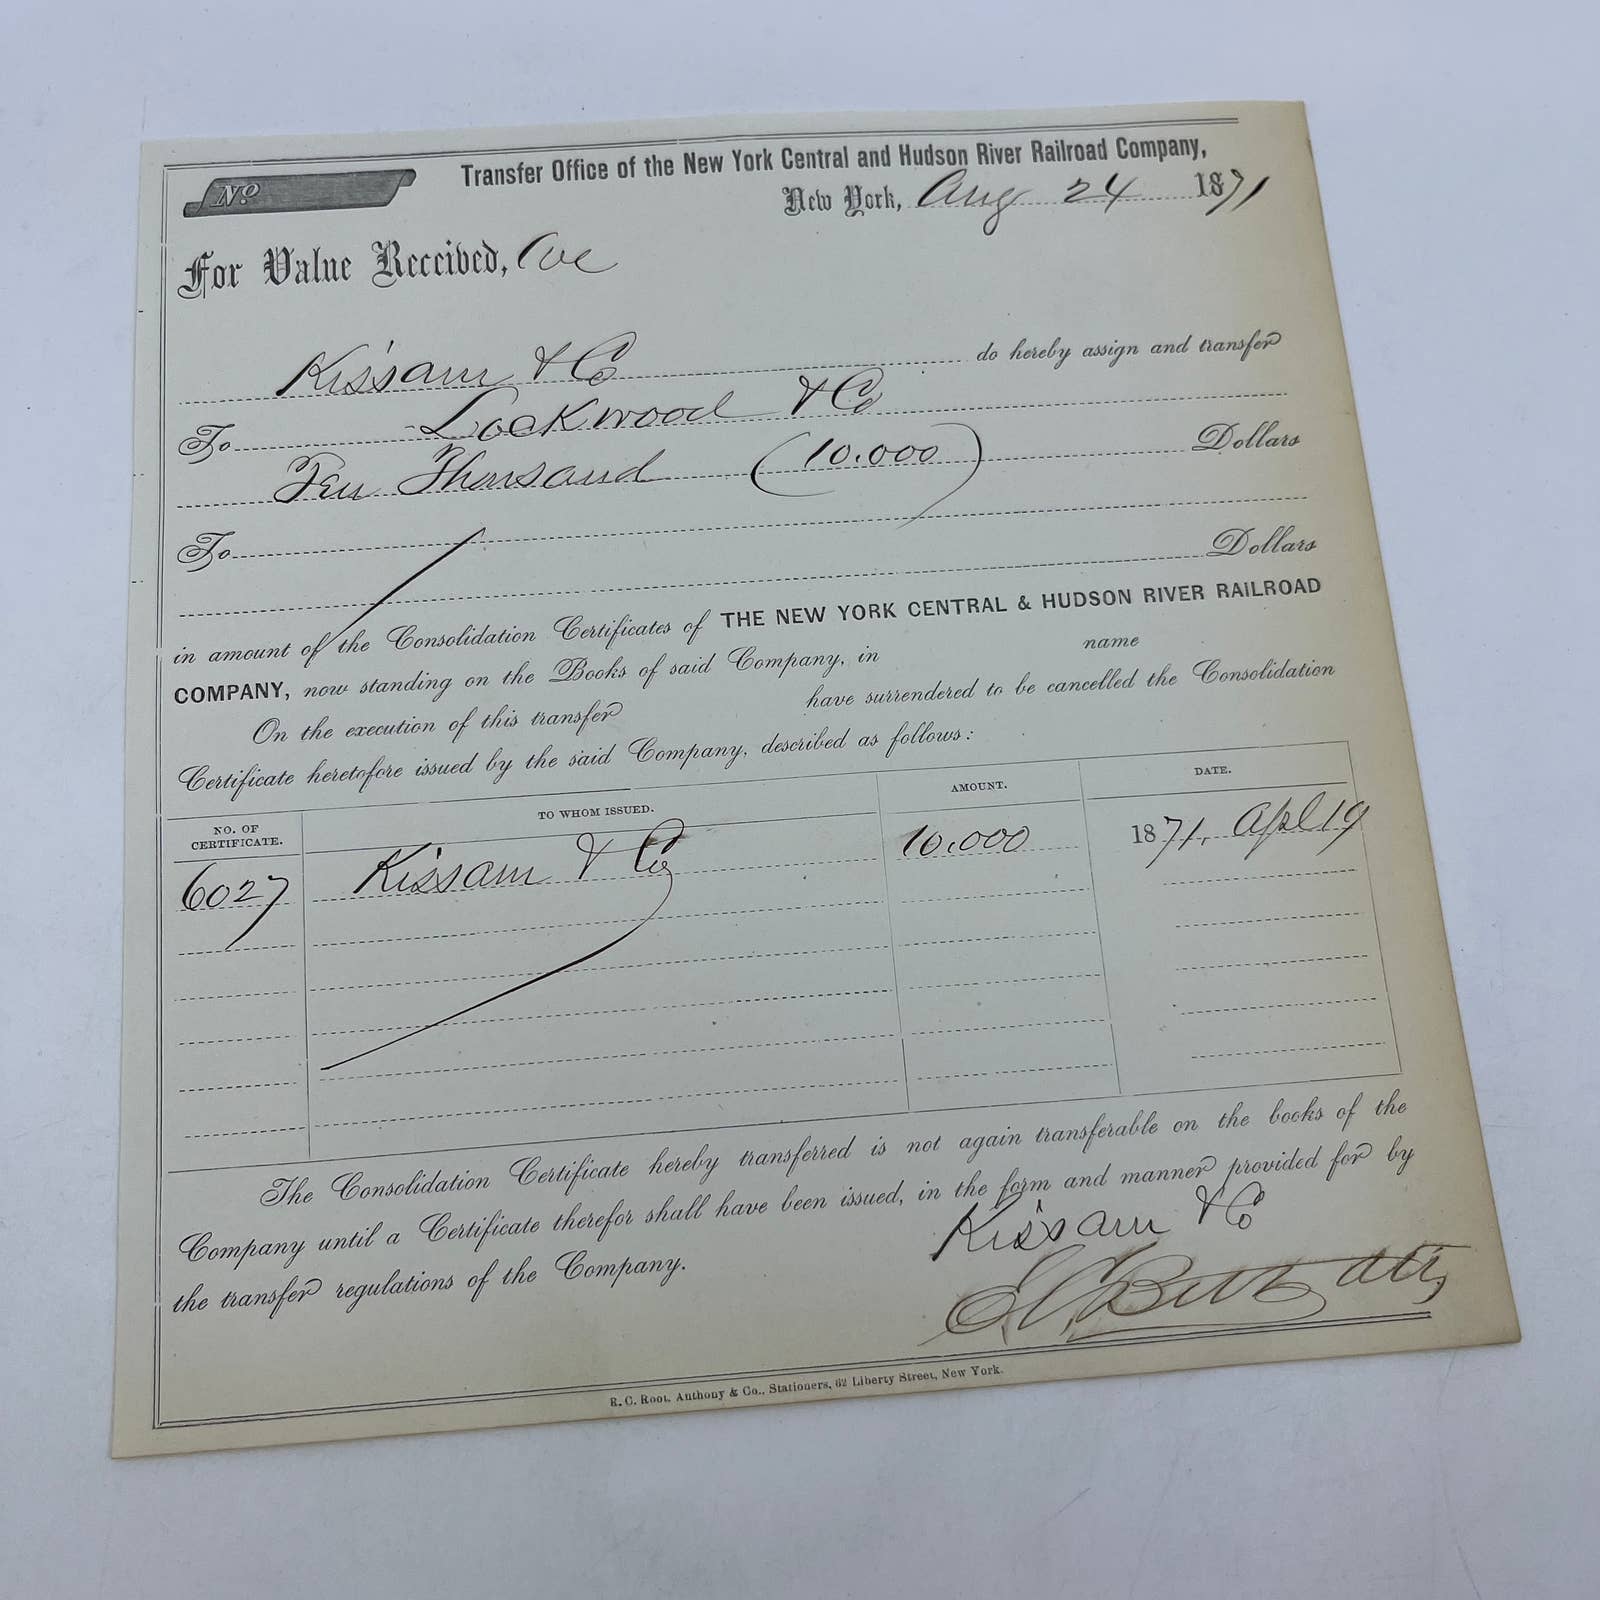 Transfer Office of the New York Central and Hudson River Railroad Company,
No
New York, Aug 24 1871
For Value Received, We
Kissam & Co do hereby assign and transfer
To Lockwood & Co
Ten Thousand (10.000) Dollars
To
Dollars
in amount of the Consolidation Certificates of THE NEW YORK CENTRAL & HUDSON RIVER RAILROAD
COMPANY, now standing on the Books of said Company, in name
On the execution of this transfer have surrendered to be cancelled the Consolidation
Certificate heretofore issued by the said Company, described as follows:
NO. OF CERTIFICATE. TO WHOM ISSUED. AMOUNT. DATE.
6027 Kissam & Co 10.000 1871, Apl 19
The Consolidation Certificate hereby transferred is not again transferable on the books of the
Company until a Certificate therefor shall have been issued, in the form and manner provided for by
the transfer regulations of the Company.
Kissam & Co
atty
R. C. Root, Anthony & Co., Stationers, 62 Liberty Street, New York.